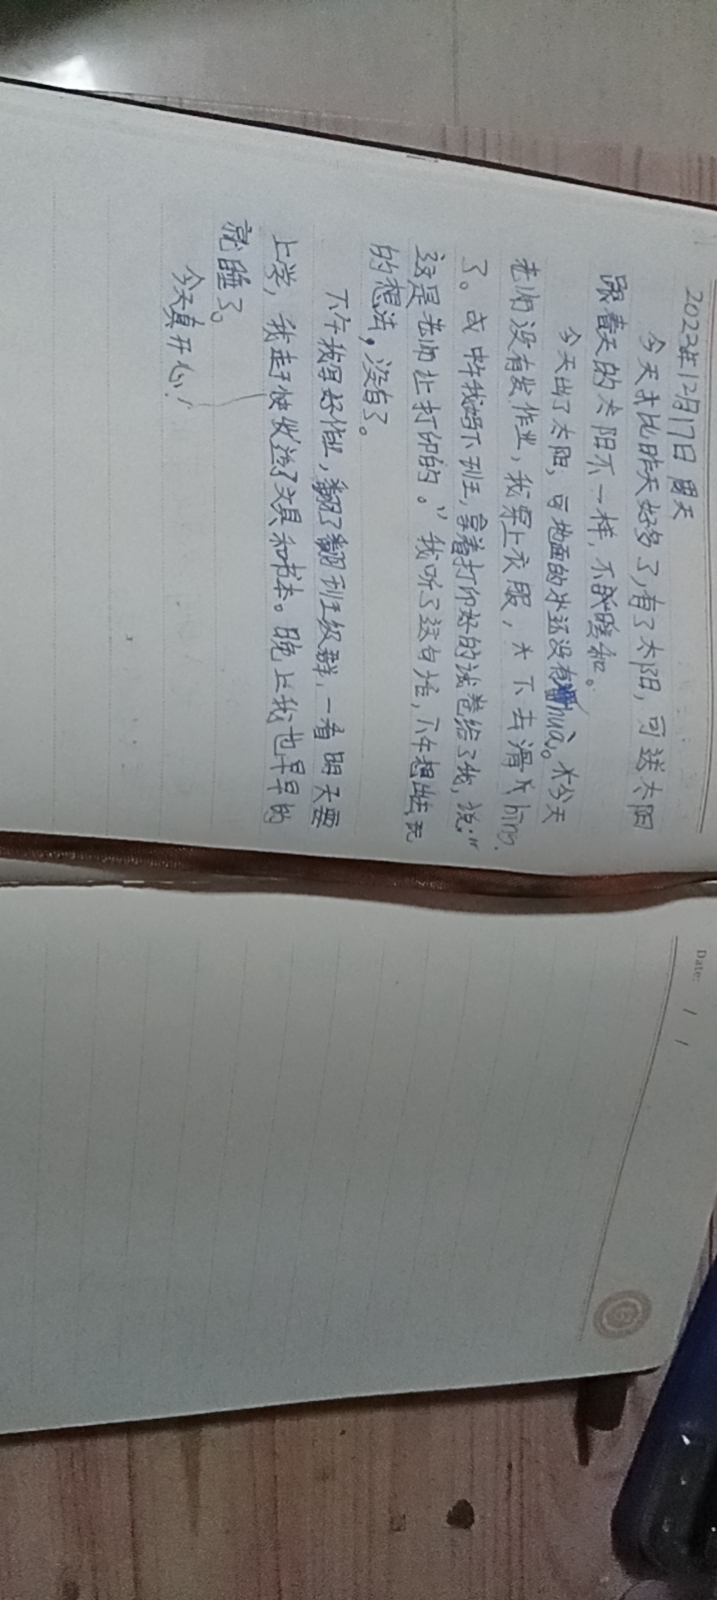 2023年12月17日 周天
今天比昨天好多了,有了太阳,可这太阳
跟春天的太阳不一样,不暖和。
今天出了太阳,可地面的水还没有huà。今天
老师没有发作业,我穿上衣服,下去滑bīng
了。我妈下班,拿着打印好的试卷给了我,说:"
这是老师让打印的。"我听了这句话,想出去玩
的想法,没有了。
下午我写好作业,翻了翻班级群,一看明天要
上学,我赶快收拾了文具和书本。晚上我也早早的
就睡了。
今天真开心!
Date: / /